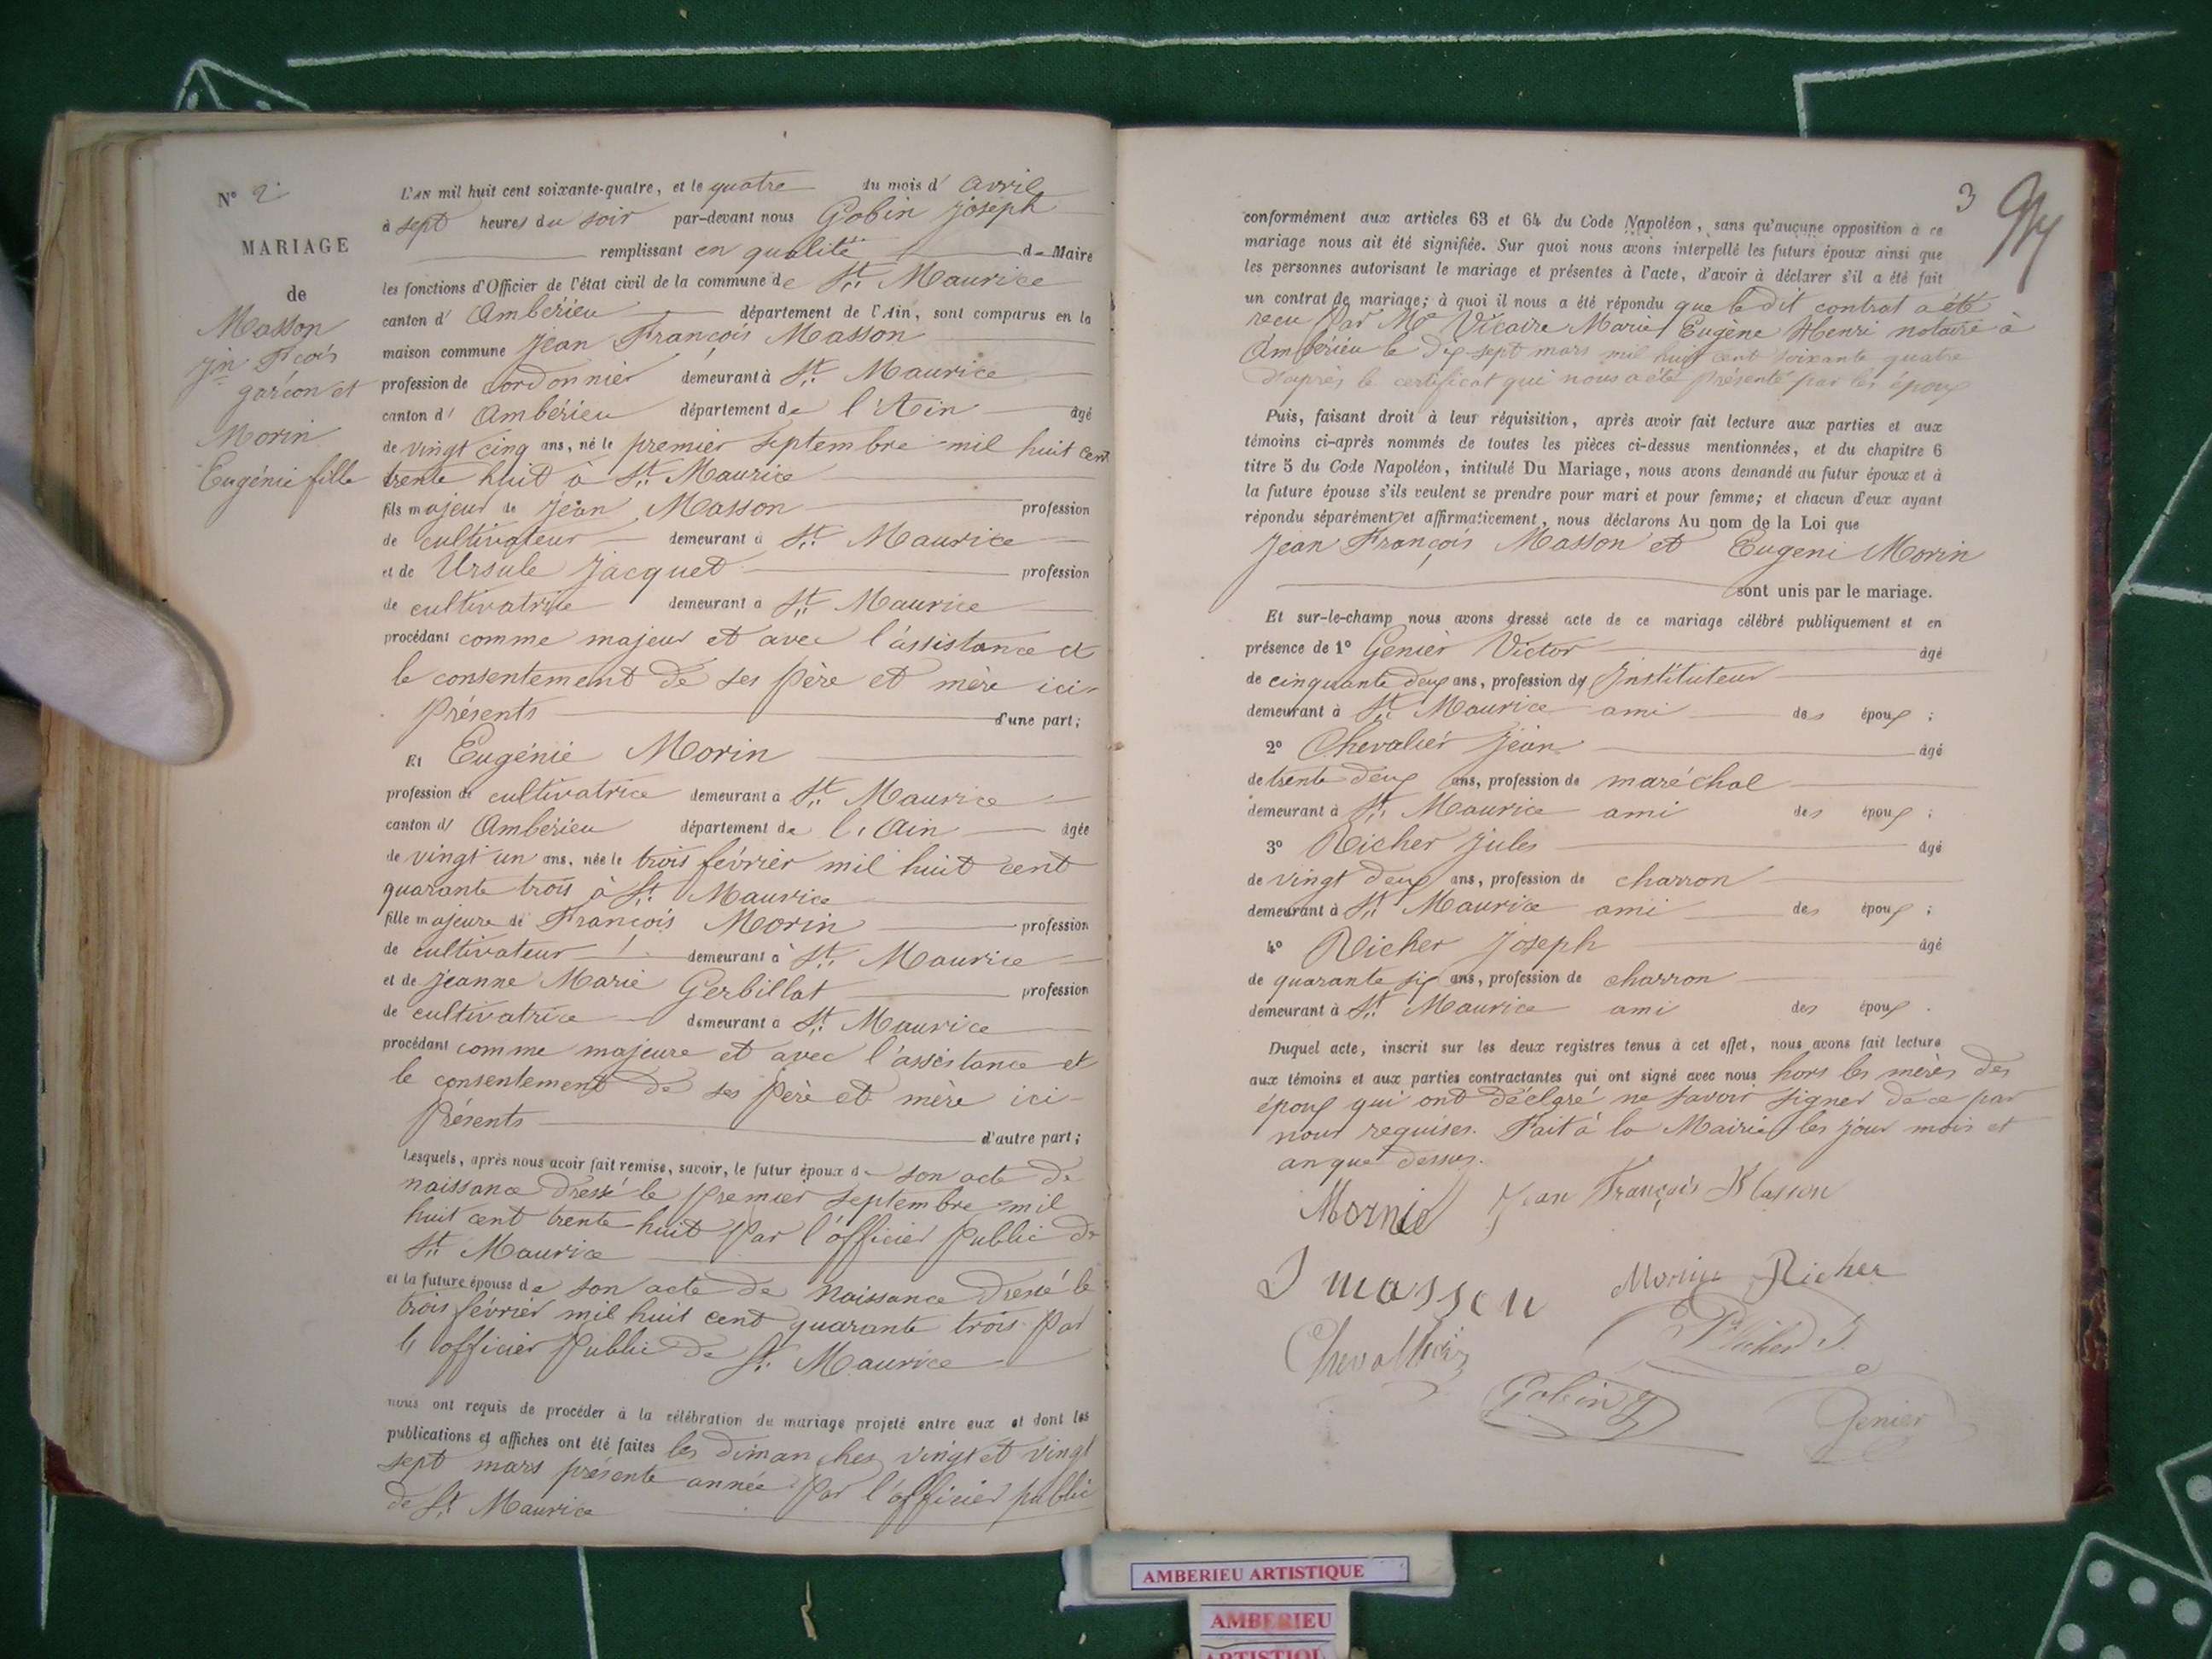 N° 2
MARIAGE
de
Masson
Jn Fcois
garçon et
Morin
Eugénie fille
L'AN mil huit cent soixante-quatre, et le quatre du mois d' avril
à sept heures du soir par-devant nous Gobin Joseph
remplissant en qualité de Maire
les fonctions d'Officier de l'état civil de la commune de St Maurice
canton d' Ambérieu département de l'Ain, sont comparus en la
maison commune Jean François Masson
profession de cordonnier demeurant à St Maurice
canton d' Ambérieu département de l'Ain âgé
de vingt cinq ans, né le premier septembre mil huit cent
trente huit à St Maurice
fils majeur de Jean Masson profession
de cultivateur demeurant à St Maurice
et de Ursule Jacquet profession
de cultivatrice demeurant à St Maurice
procédant comme majeur et avec l'assistance et
le consentement de ses père et mère ici
présents d'une part;
Et Eugénie Morin
profession de cultivatrice demeurant à St Maurice
canton d' Ambérieu département de l'Ain âgée
de vingt un ans, née le trois février mil huit cent
quarante trois à St Maurice
fille majeure de François Morin profession
de cultivateur demeurant à St Maurice
et de Jeanne Marie Gerbillat profession
de cultivatrice demeurant à St Maurice
procédant comme majeure et avec l'assistance et
le consentement de ses père et mère ici
présents d'autre part;
Lesquels, après nous avoir fait remise, savoir, le futur époux de son acte de
naissance dressé le premier septembre mil
huit cent trente huit par l'officier public de
St Maurice
et la future épouse de son acte de naissance dressé le
trois février mil huit cent quarante trois par
l'officier public de St Maurice
nous ont requis de procéder à la célébration du mariage projeté entre eux et dont les
publications et affiches ont été faites les dimanches vingt et vingt
sept mars présente année par l'officier public
de St Maurice
3
conformément aux articles 63 et 64 du Code Napoléon, sans qu'aucune opposition à ce
mariage nous ait été signifiée. Sur quoi nous avons interpellé les futurs époux ainsi que
les personnes autorisant le mariage et présentes à l'acte, d'avoir à déclarer s'il a été fait
un contrat de mariage; à quoi il nous a été répondu que le dit contrat a été
recu par Me Vicaire Marie Eugène Henri notaire à
Ambérieu le dix-sept mars mil huit cent soixante quatre
d'après le certificat qui nous a été présenté par les époux
Puis, faisant droit à leur réquisition, après avoir fait lecture aux parties et aux
témoins ci-après nommés de toutes les pièces ci-dessus mentionnées, et du chapitre 6
titre 5 du Code Napoléon, intitulé Du Mariage, nous avons demandé au futur époux et à
la future épouse s'ils veulent se prendre pour mari et pour femme; et chacun d'eux ayant
répondu séparément et affirmativement, nous déclarons Au nom de la Loi que
Jean François Masson et Eugeni Morin
sont unis par le mariage.
Et sur-le-champ nous avons dressé acte de ce mariage célébré publiquement et en
présence de 1° Genier Victor âgé
de cinquante deux ans, profession d' Instituteur
demeurant à St Maurice ami des époux ;
2° Chevalier Jean âgé
de trente deux ans, profession de maréchal
demeurant à St Maurice ami des époux ;
3° Richer Jules âgé
de vingt deux ans, profession de charron
demeurant à St Maurice ami des époux ;
4° Richer Joseph âgé
de quarante six ans, profession de charron
demeurant à St Maurice ami des époux .
Duquel acte, inscrit sur les deux registres tenus à cet effet, nous avons fait lecture
aux témoins et aux parties contractantes qui ont signé avec nous hors les mères des
époux qui ont déclaré ne savoir signer de ce par
nous requises. Fait à la Mairie les jour mois et
an que dessus.
Jean François Masson
J masson
Richer
Chevallier
Richer J.
Gobin J
Genier
AMBERIEU ARTISTIQUE
AMBERIEU